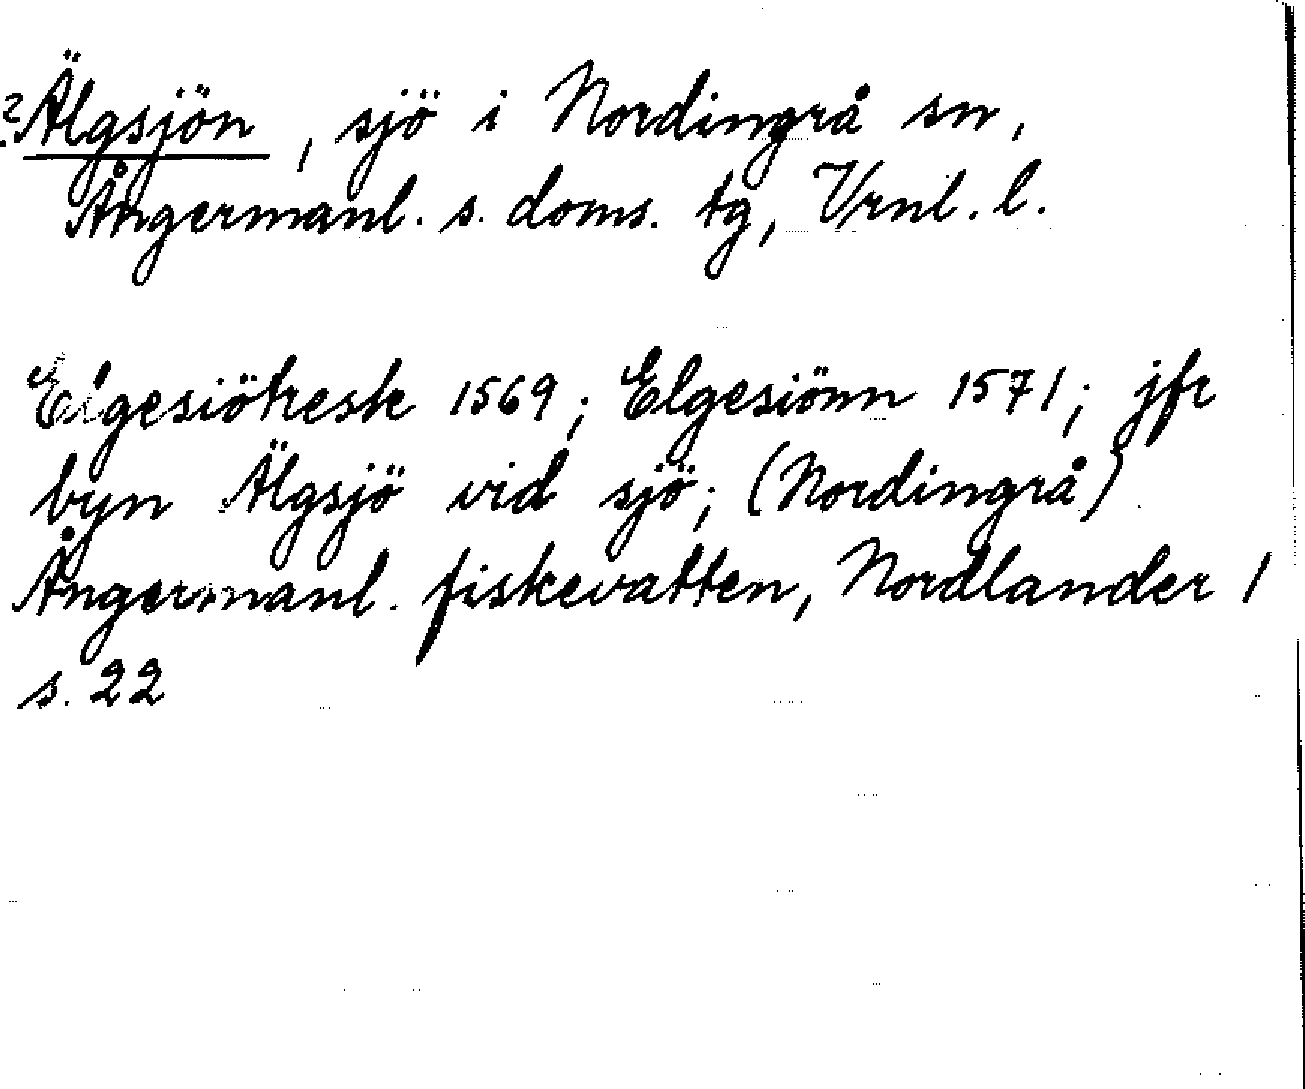 ? Älgsjön, sjö i Nordingrå sn,
Ångermanl. s. doms. tg, Vrnl. l.
Elgesiötresk 1569; Elgesiönn 1571; jfr
byn Älgsjö vid sjö; (Nordingrå)
Ångermanl. fiskevatten, Nordlander 1
s. 22